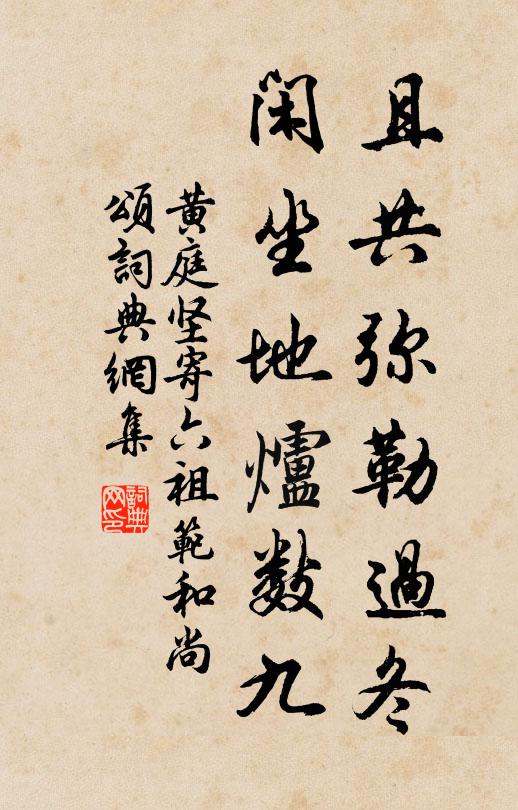 且共弥勒過冬
閑坐地爐数九
黄庭坚寄六祖範和尚
頌詞典網集
詞典网印